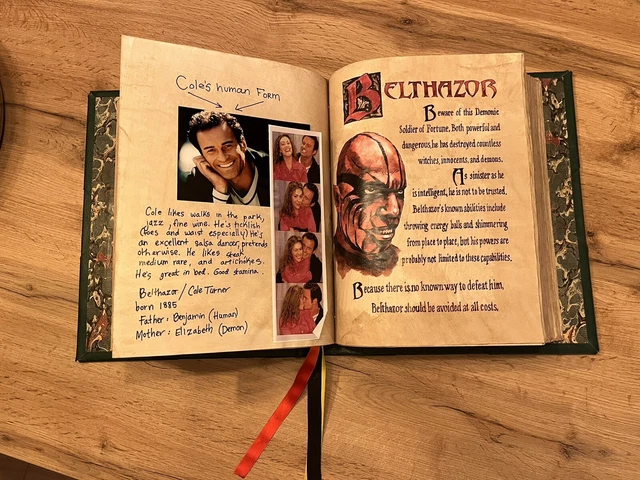 Cole's human Form
Cole likes walks in the park,
jazz, fine wine. He's ticklish
(toes and waist especially) He's
an excellent salsa dancer, pretends
otherwise. He likes steak
medium rare, and artichokes.
He's great in bed. Good stamina.
Belthazor / Cole Turner
born 1885
Father: Benjamin (Human)
Mother: Elizabeth (Demon)
BELTHAZOR
Beware of this Demonic
Soldier of Fortune. Both powerful and
dangerous, he has destroyed countless
witches, innocents, and demons.
As sinister as he
is intelligent, he is not to be trusted.
Belthazor's known abilities include
throwing energy balls and shimmering
from place to place, but his powers are
probably not limited to these capabilities.
Because there is no known way to defeat him,
Belthazor should be avoided at all costs.